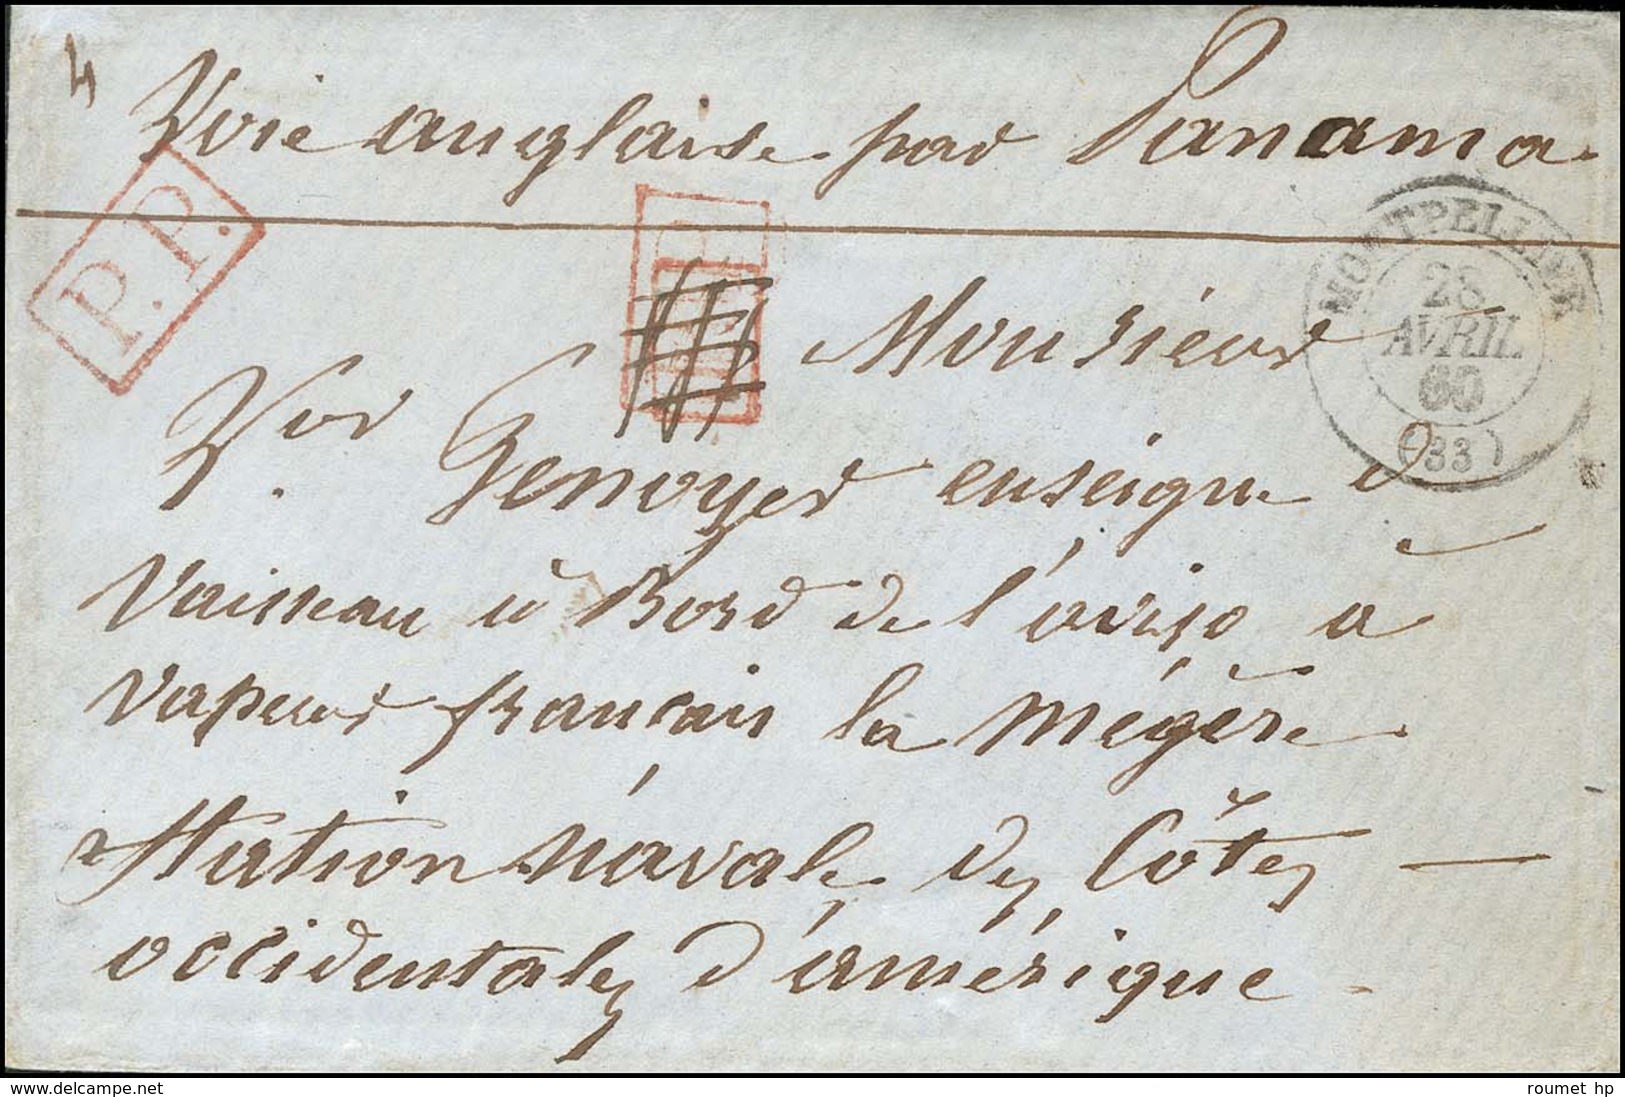 4
Voie anglaise par Panama
P.P.
MONTPELLIER
28
AVRIL
60
(33)
Monsieur
Vor Genoyer enseigne de
Vaisseau à Bord de l'aviso à
Vapeur français la Mégère
Station Navale des Côtes —
occidentales d'amérique
www.delcampe.net
roumet hp